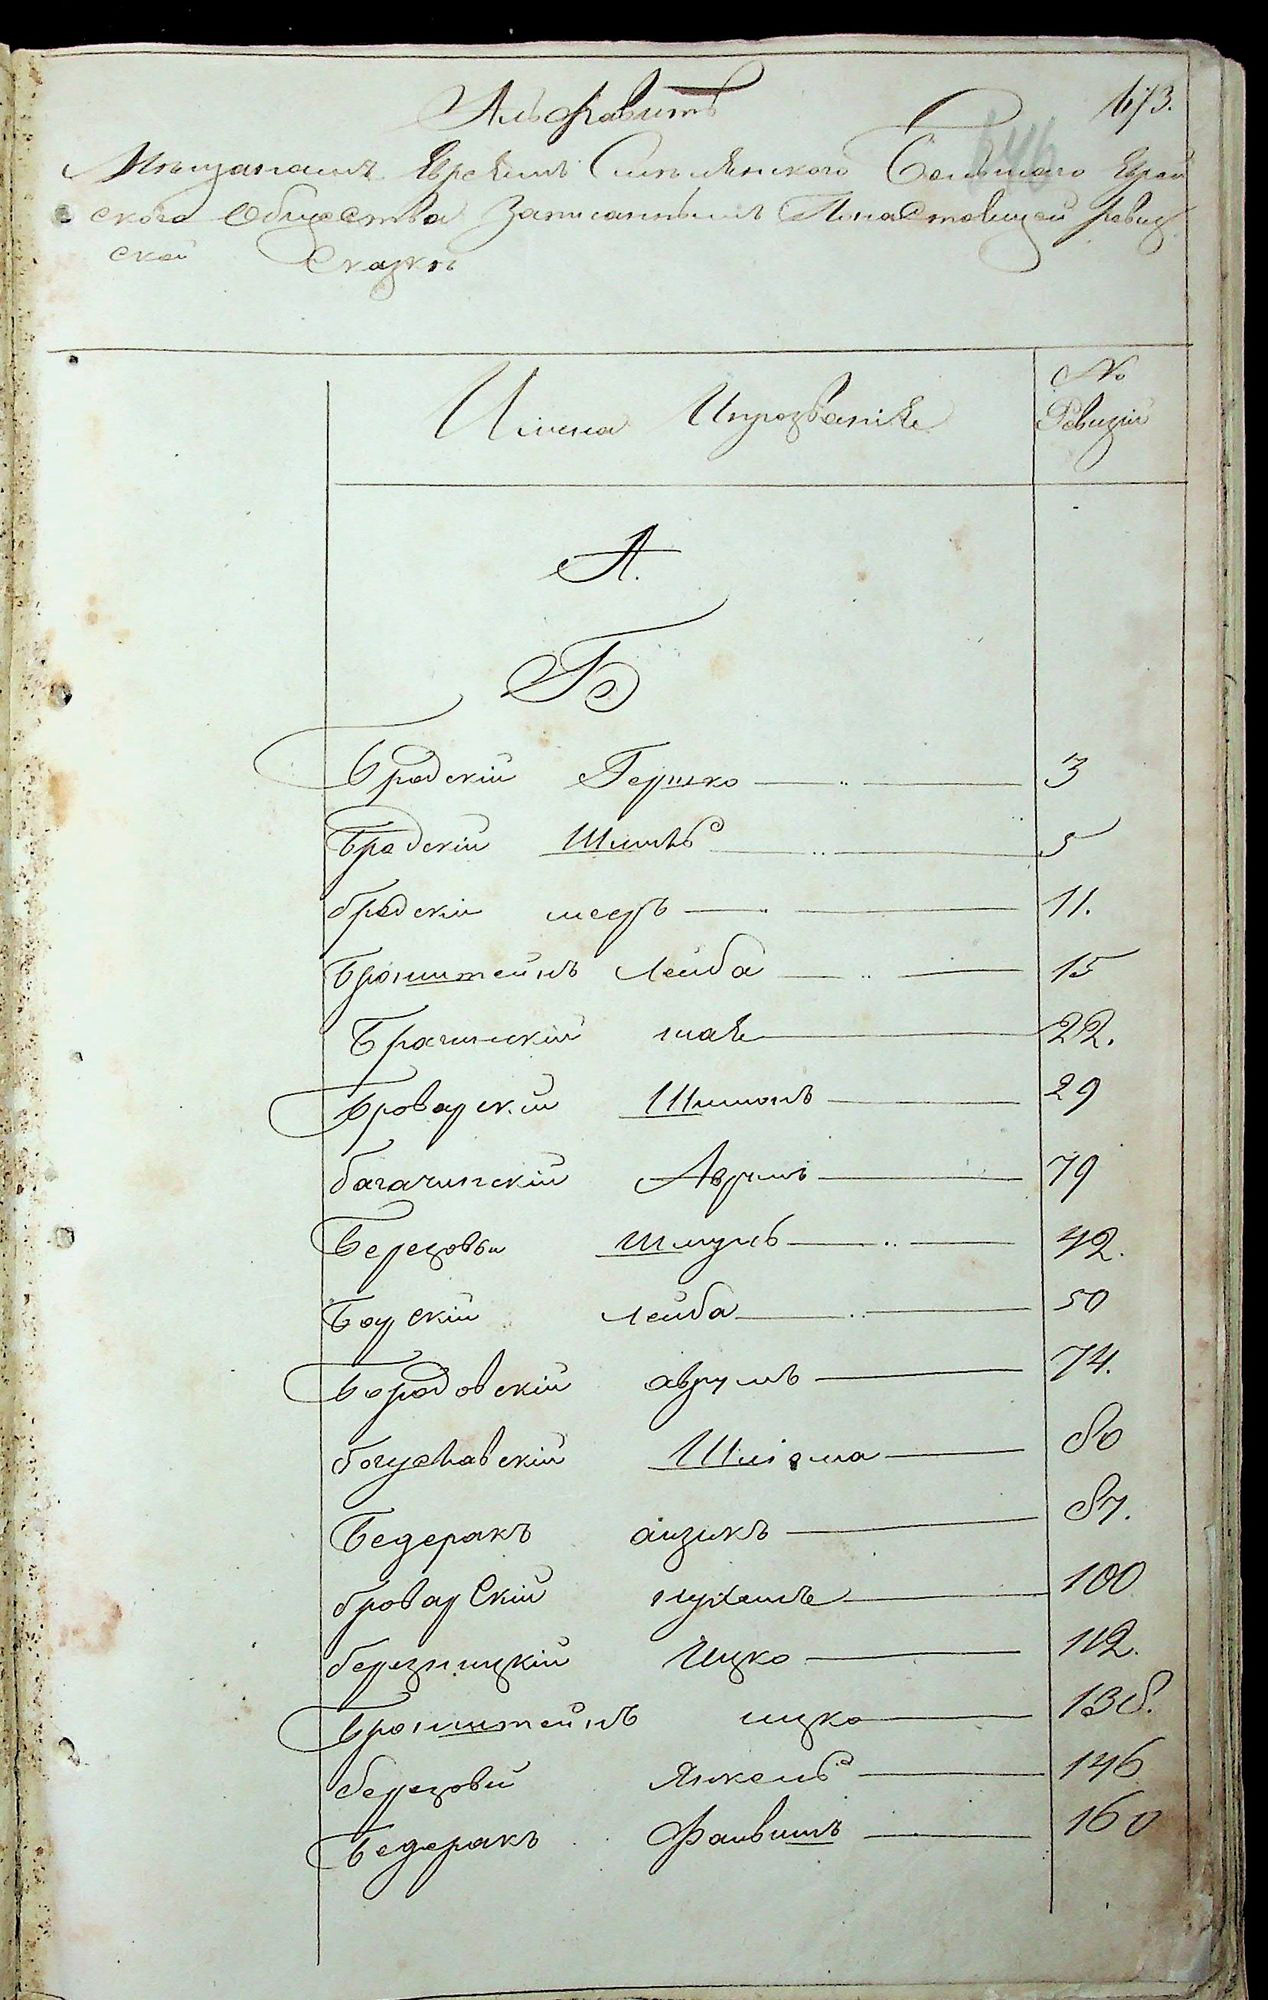 Альфавитъ
173.
646
Мѣщанамъ Евреямъ Смѣлянского Большаго Еврей
ского Общества Записаннымъ Понастоящей ревиз
ской Сказкѣ
Имена Ипрозваніе
№
Ревизіи
А.
Б
Бродскій Гершко 3
Бродскій Шмиль 5
бродскій мееръ 11.
Бронштейнъ Лейба 15
Брагинскій шае 22.
Броварскій Шимонъ 29
багачинскій Аврумъ 79
Березовы Шмуль 42.
Боурскій Лейба 50
Бородовскій аврумъ 74.
богуславскій Шлiома 80
Бедеракъ аизикъ 87.
броварскій нухемъ 100
березницкій Ицко 112.
Бронштейнъ ицко 138.
березовй Янкель 146
Бедеракъ Фаивишъ 160